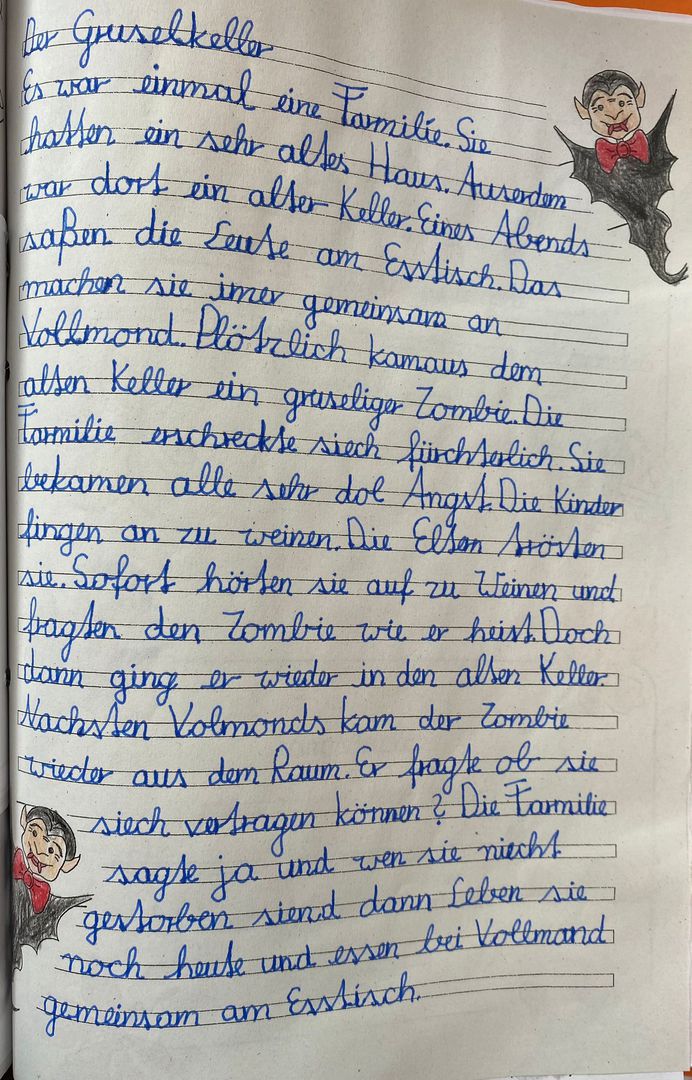 Der Gruselkeller
Es war einmal eine Farmilie. Sie
hatten ein sehr altes Haus. Auserdem
war dort ein alter Keller. Eines Abends
saßen die Leute am Esstisch. Das
machen sie imer gemeinsam an
Vollmond. Plötzlich kamaus dem
alten Keller ein gruseliger Zombie. Die
Farmilie erschreckte siech fürchterlich. Sie
bekamen alle sehr dol Angst. Die Kinder
fingen an zu weinen. Die Elten trösten
sie. Sofort hörten sie auf zu Weinen und
fragten den Zombie wie er heist. Doch
dann ging er wieder in den alten Keller.
Nachsten Volmonds kam der Zombie
wieder aus dem Raum. Er fragte ob sie
siech vertragen können? Die Farmilie
sagte ja und wen sie niecht
gestorben siend dann leben sie
noch heute und essen bei Vollmond
gemeinsam am Esstisch.